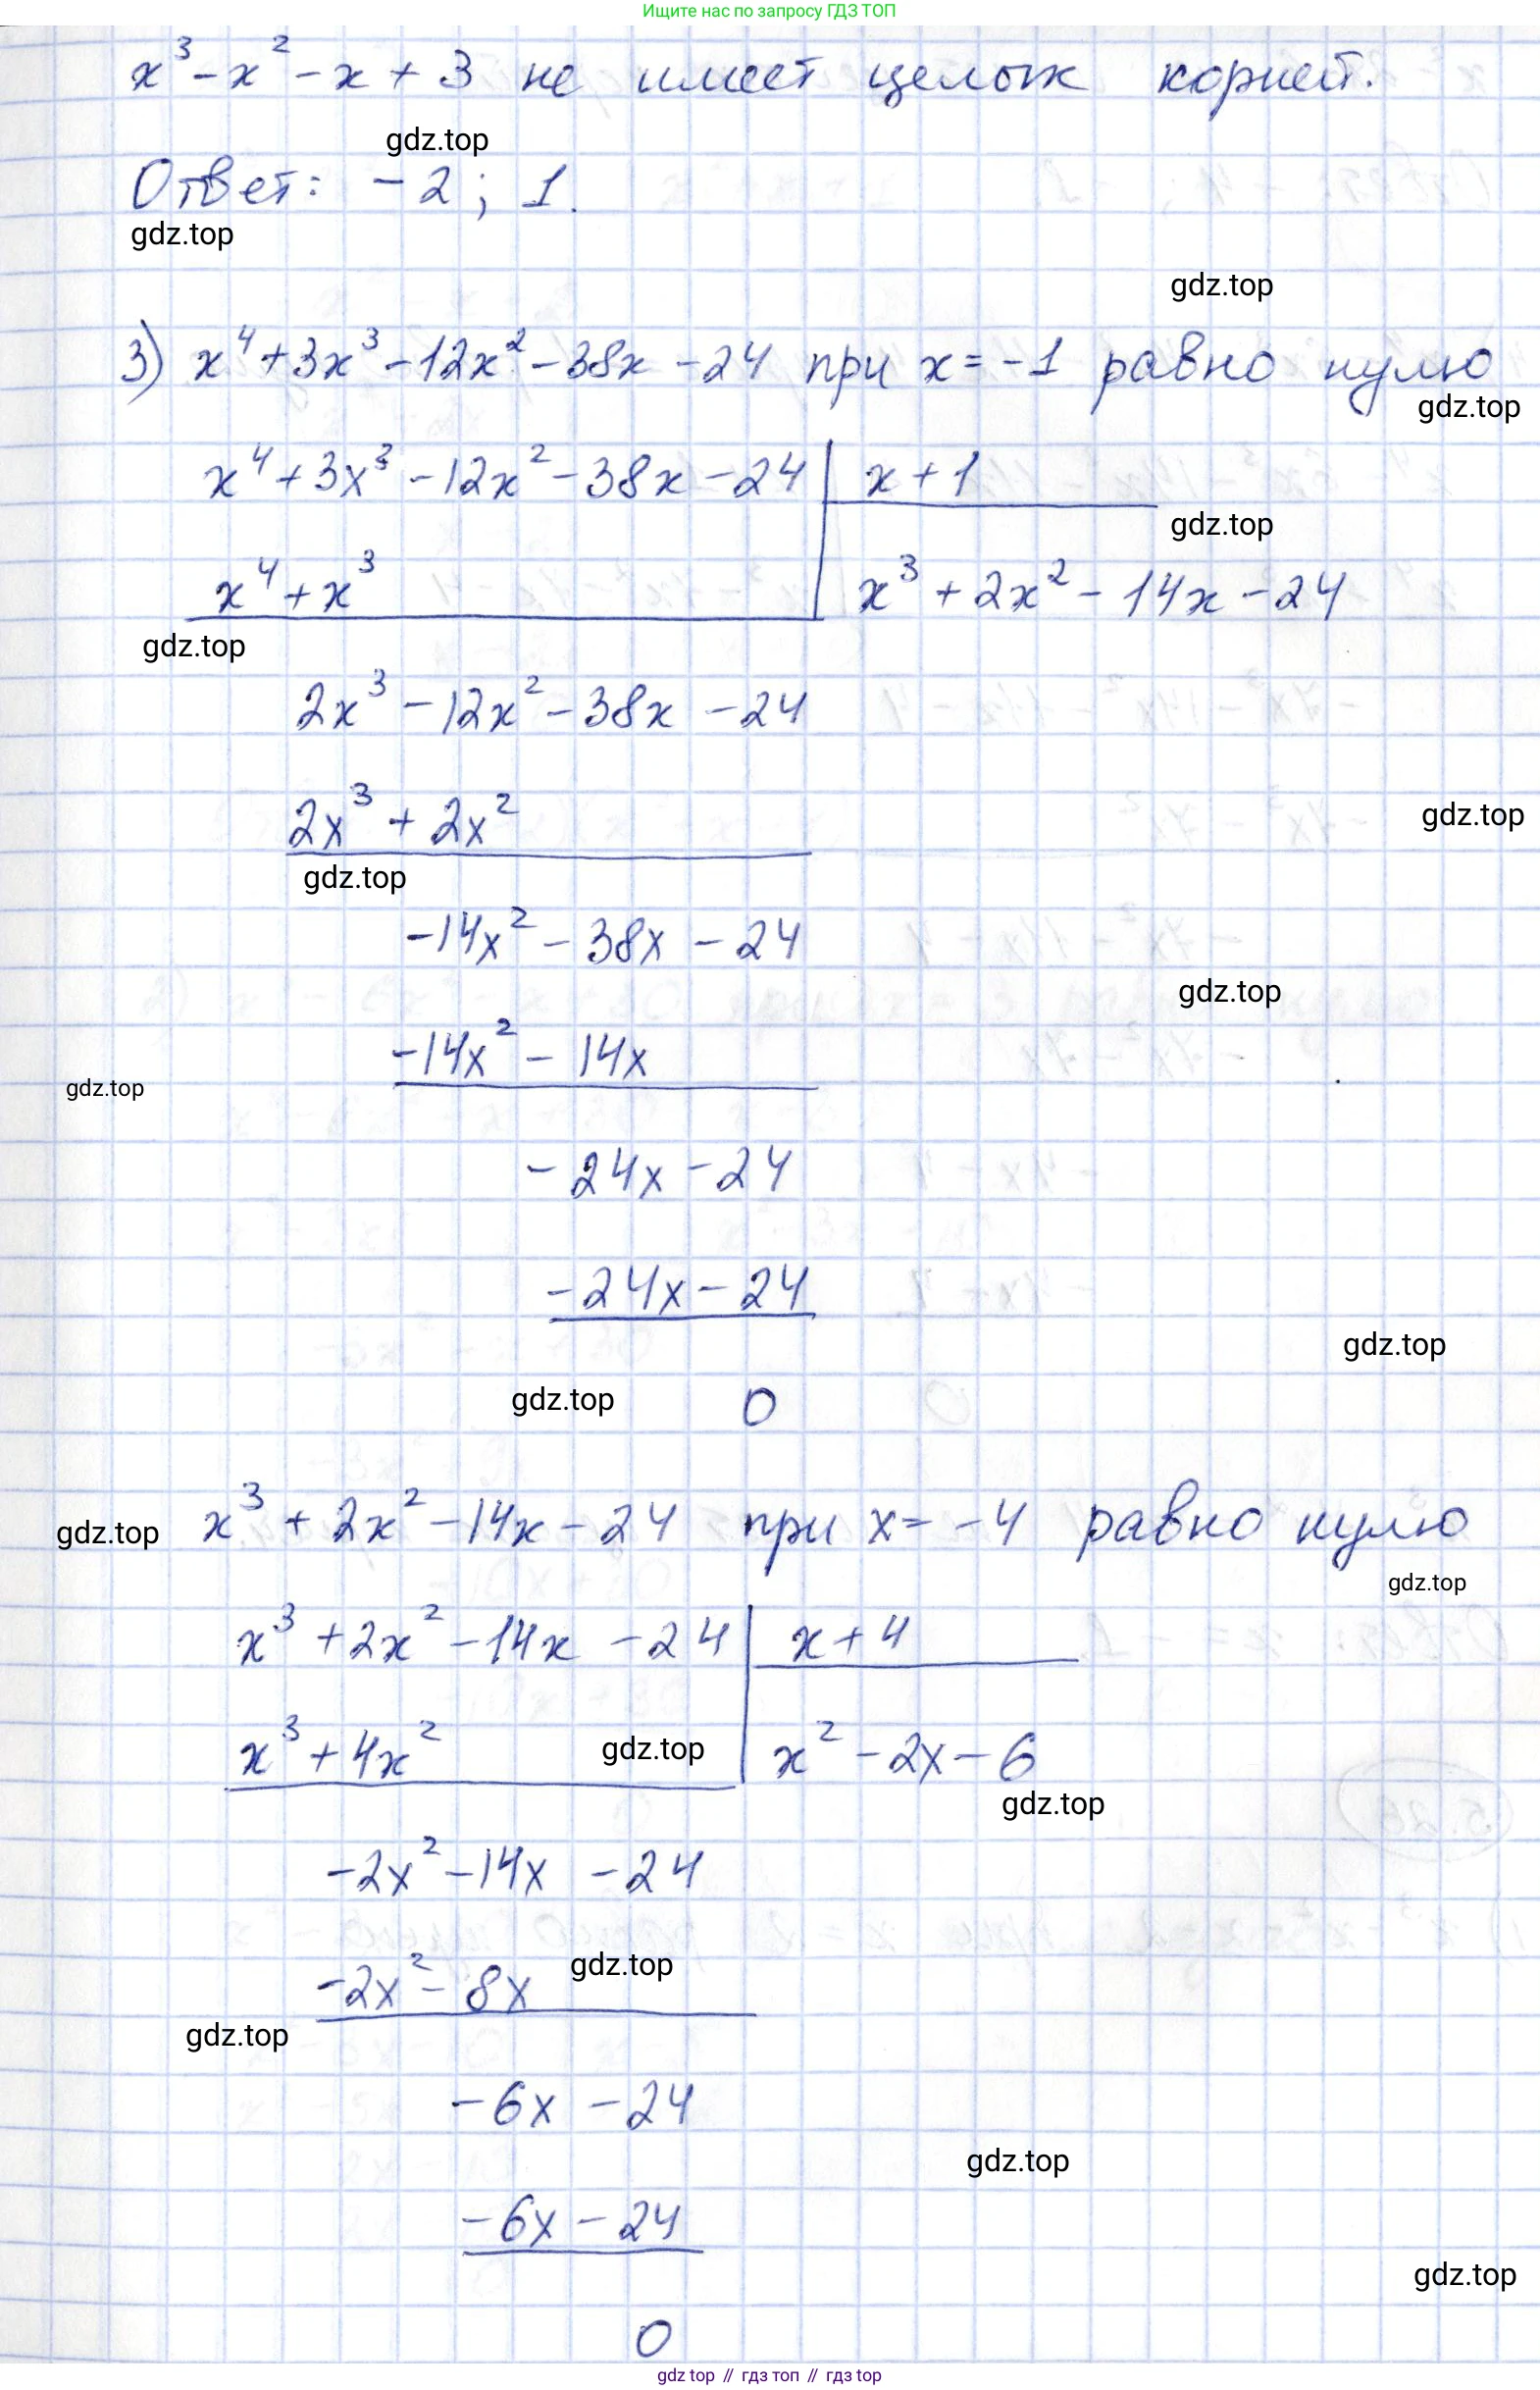 Ищите нас по запросу ГДЗ ТОП
x³ - x² - x + 3 не имеет целых корней.
gdz.top
Ответ: -2; 1.
gdz.top
gdz.top
3) x⁴ + 3x³ - 12x² - 38x - 24 при x = -1 равно нулю
gdz.top
x⁴ + 3x³ - 12x² - 38x - 24 | x + 1
gdz.top
x⁴ + x³ | x³ + 2x² - 14x - 24
gdz.top
2x³ - 12x² - 38x - 24
2x³ + 2x²
gdz.top
gdz.top
-14x² - 38x - 24
gdz.top
-14x² - 14x
gdz.top
-24x - 24
-24x - 24
gdz.top
gdz.top 0
x³ + 2x² - 14x - 24 при x = -4 равно нулю
gdz.top
gdz.top
x³ + 2x² - 14x - 24 | x + 4
x³ + 4x² | x² - 2x - 6
gdz.top
gdz.top
-2x² - 14x - 24
-2x² - 8x
gdz.top
gdz.top
-6x - 24
gdz.top
-6x - 24
gdz.top
0
gdz top // гдз топ // гдз top